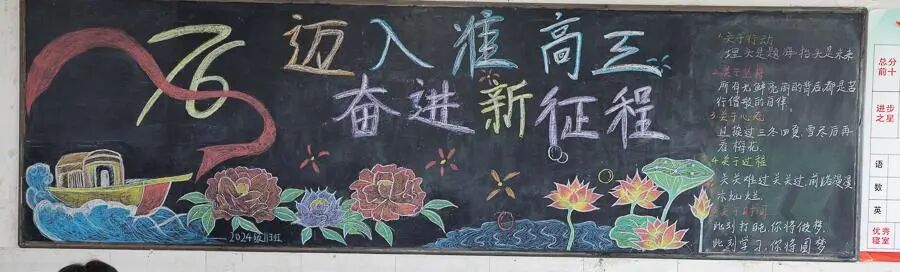 76
迈入准高三
奋进新征程
1.关于行动
埋头是题海,抬头是未来
2.关于坚持
所有光鲜亮丽的背后都是苦
行僧般的自律.
3.关于心态
且挨过三冬四夏,雪尽后再
看梅花.
4.关于过程
关关难过关关过,前路漫漫
亦灿灿.
5.关于时间
此刻打盹,你将做梦.
此刻学习,你将圆梦
2024级113班
总分
前十
进步
之星
语
数
英
优秀
寝室